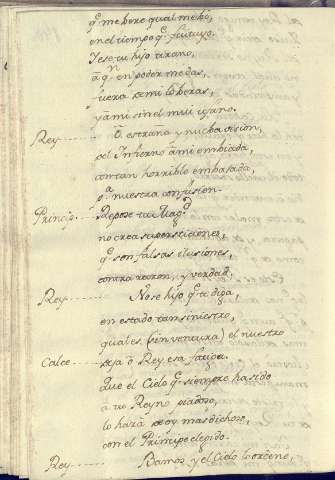 q.e me hore qual me hõ,
en el tiempo q.e fui tuyo.
Y ese tu hijo tirano,
a q.n en poder me das,
fuera de mi lo veras,
y a mi sin el mui ufano.
Rey O estraña y nucha vision,
del Infierno a mi embiada,
con tan horrible embaxada,
p.a nuestra confusion.
Princip. Repose tu Mag.d
no crea supersticiones,
q.e son falsas ilusiones,
contra razon, y verdad.
Rey No se hijo q.e te diga,
en estado tan siniestro,
qual es (sin ventura) el nuestro
Calce deja ô Rey esa fatiga.
Que el Cielo q.e siempre ha sido
a tu Reyno piadoso,
lo hará de oy mas dichoso,
con el Principe elegido.
Rey Vamos, y el Cielo lo ordene,